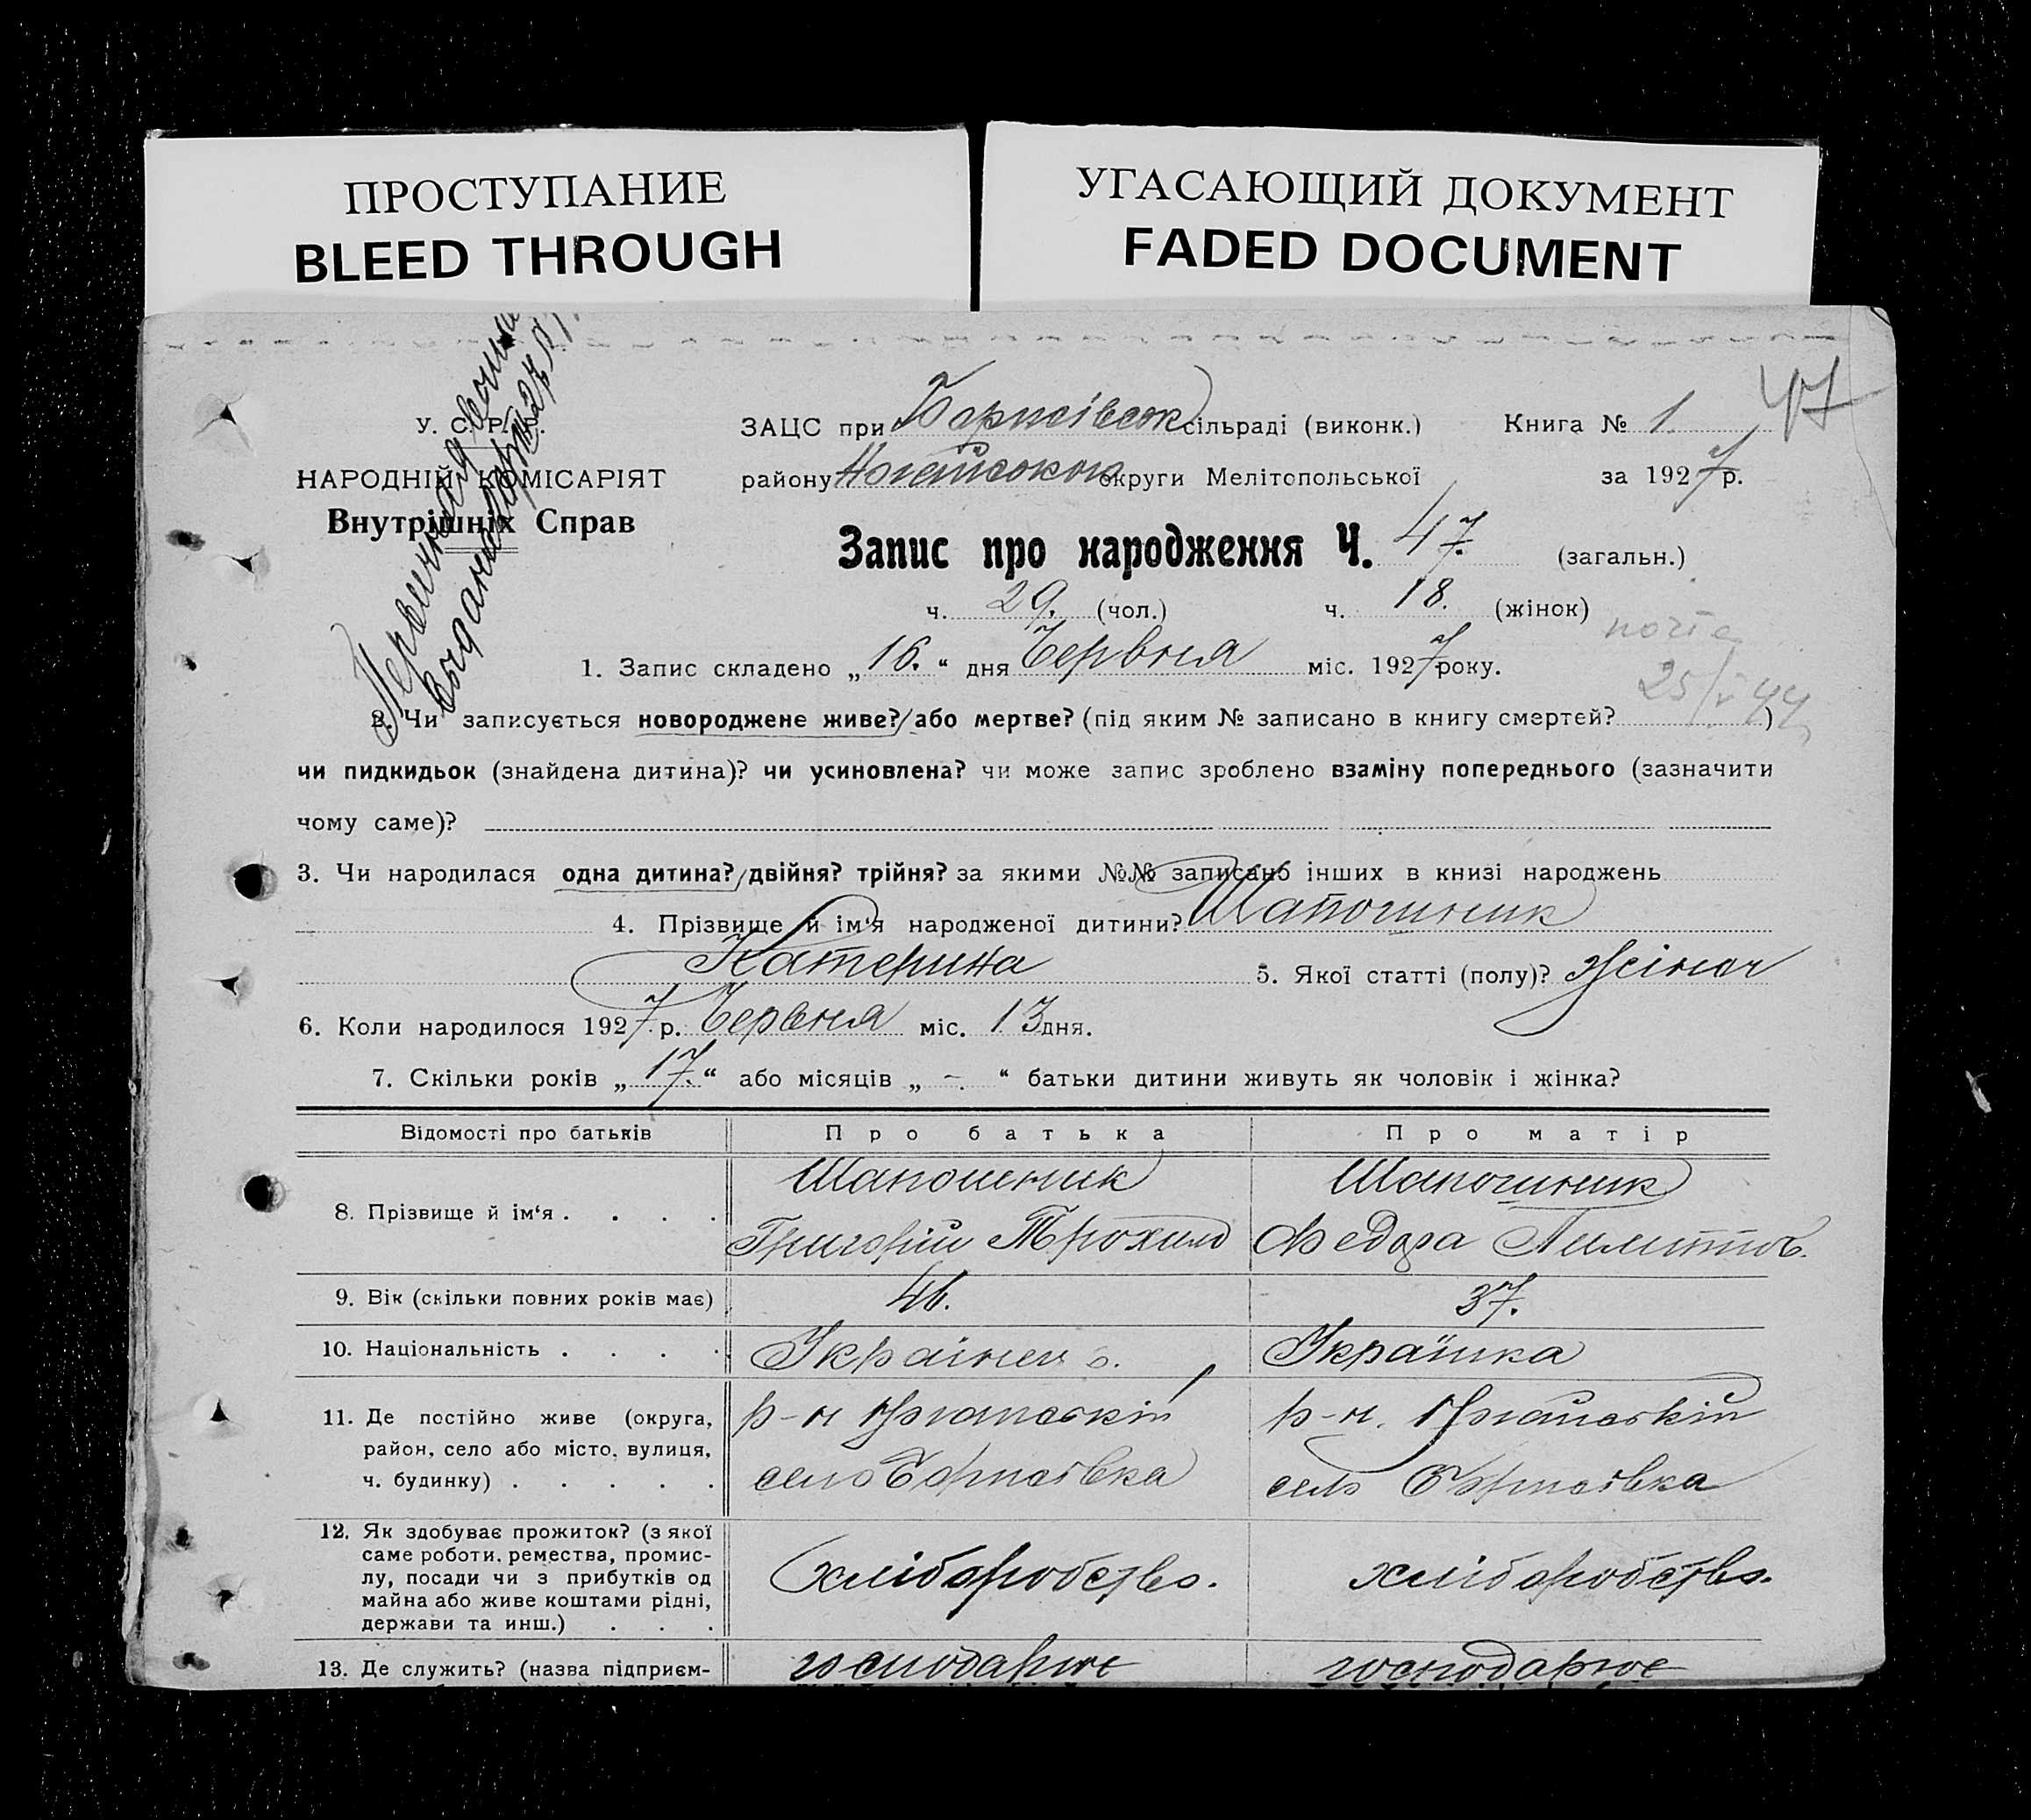 ПРОСТУПАНИЕ
BLEED THROUGH
УГАСАЮЩИЙ ДОКУМЕНТ
FADED DOCUMENT
47
У. С. Р. Р.
НАРОДНІЙ КОМІСАРІЯТ
Внутрішніх Справ
ЗАЦС при Борисівськ сільраді (виконк.) Книга № 1.
району Ногайського округи Мелітопольської за 1927 р.
Запис про народження Ч. 47. (загальн.)
ч. 29. (чол.) ч. 18. (жінок)
1. Запис складено „ 16. “ дня Червня міс. 1927 року.
25/V 44
2. Чи записується новороджене живе? або мертве? (під яким № записано в книгу смертей? )
чи пидкидьок (знайдена дитина)? чи усиновлена? чи може запис зроблено взаміну попереднього (зазначити
чому саме)?
3. Чи народилася одна дитина? двійня? трійня? за якими №№ записано інших в книзі народжень
4. Прізвище й ім‘я народженої дитини? Шапошник
Катерина 5. Якої статті (полу)? жіноч
6. Коли народилося 1927 р. Червня міс. 13 дня.
7. Скільки років „ 17. “ або місяців „ –. “ батьки дитини живуть як чоловік і жінка?
Відомості про батьків Про батька Про матір
8. Прізвище й ім‘я . . . . Шапошник Шапошник
Григорій Трохимо Федора Пилипов.
9. Вік (скільки повних років має) 46. 37.
10. Національність . . . . Українец Українка
11. Де постійно живе (округа, р-н Ногайський р-н. Ногайський
район, село або місто, вулиця,
ч. будинку) . . . . . село Борисівка село Борисівка
12. Як здобуває прожиток? (з якої
саме роботи, ремества, промис-
лу, посади чи з прибутків од хліборобство. хліборобство.
майна або живе коштами рідні,
держави та инш.) . . .
13. Де служить? (назва підприєм- господарює господарює